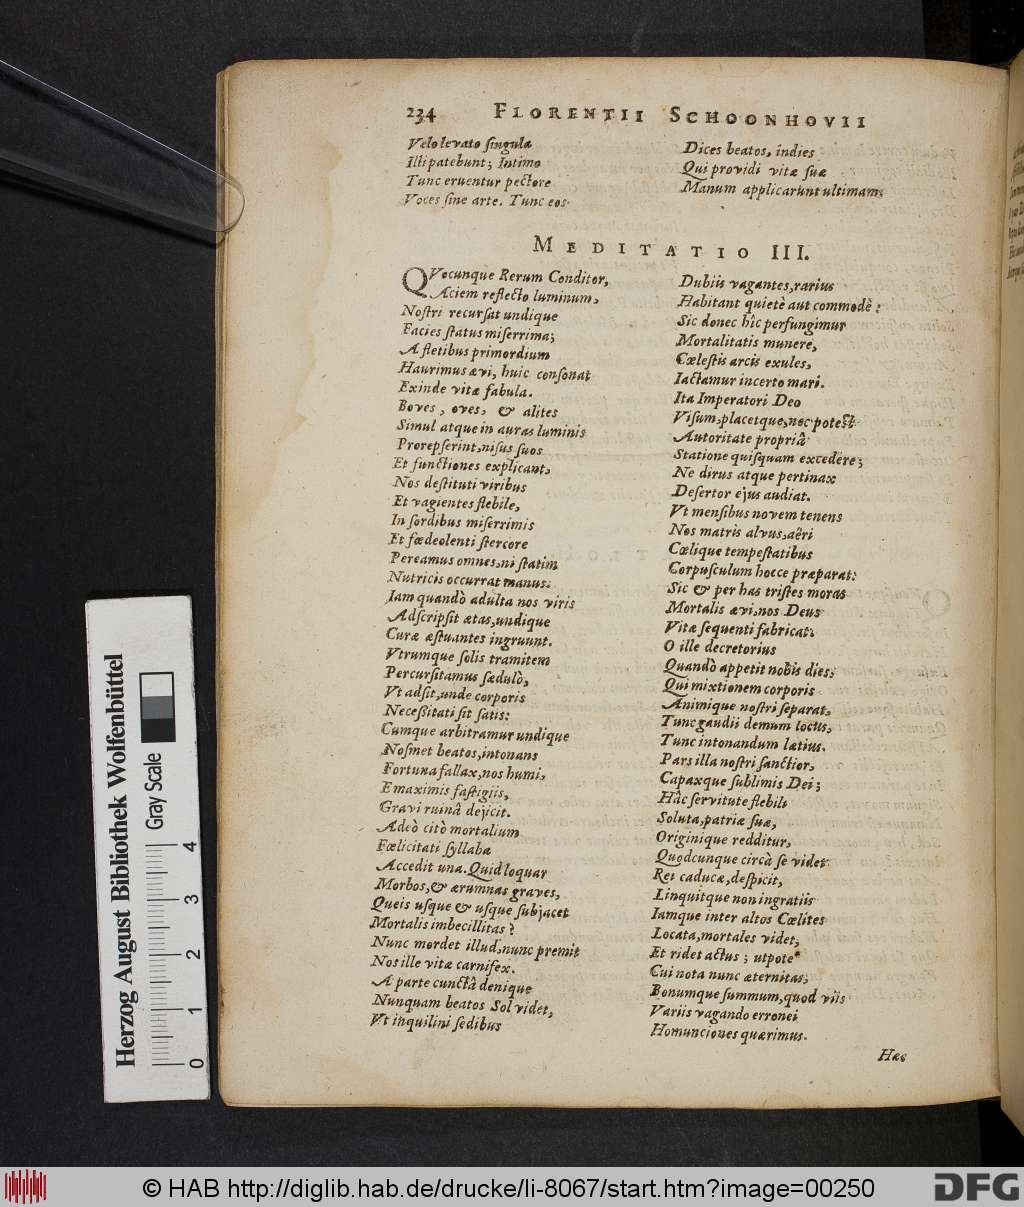 234 FLORENTII SCHOONHOVII
Velo levato ſingula
Illi patebunt; Intimo
Tunc eruentur pectore
Voces ſine arte. Tunc eos
Dices beatos, indies
Qui providi vitæ ſuæ
Manum applicarunt ultimam.
MEDITATIO III.
QVocunque Rerum Conditor,
Aciem reflecto luminum,
Noſtri recurſat undique
Facies ſtatus miſerrima;
A fletibus primordium
Haurimus ævi, huic conſonat
Exinde vitæ fabula.
Boves, oves, & alites
Simul atque in auras luminis
Prorepſerint, niſus ſuos
Et functiones explicant,
Nos deſtituti viribus
Et vagientes flebile,
In ſordibus miſerrimis
Et fœdeolenti ſtercore
Pereamus omnes, ni ſtatim
Nutricis occurrat manus.
Jam quandò adulta nos viris
Adſcripſit ætas, undique
Curæ æſtuantes ingruunt.
Vtrumque ſolis tramitem
Percurſitamus ſædulò,
Vt adſit, unde corporis
Neceßitati ſit ſatis:
Cumque arbitramur undique
Noſmet beatos, intonans
Fortuna fallax, nos humi,
E maximis faſtigiis,
Gravi ruinâ dejicit.
Adeò citò mortalium
Fœlicitati ſyllaba
Accedit una. Quid loquar
Morbos, & ærumnas graves,
Queis uſque & uſque ſubjacet
Mortalis imbecillitas?
Nunc mordet illud, nunc premit
Nos ille vitæ carnifex.
A parte cunctâ denique
Nunquam beatos Sol videt,
Vt inquilini ſedibus
Dubiis vagantes, rarius
Habitant quietè aut commodè:
Sic donec hîc perfungimur
Mortalitatis munere,
Cæleſtis arcis exules,
Iactamur incerto mari.
Ita Imperatori Deo
Viſum, placetque, nec poteſt
Autoritate propriâ
Statione quiſquam excedere;
Ne dirus atque pertinax
Deſertor ejus audiat.
Vt menſibus novem tenens
Nos matris alvus, aëri
Cœlique tempeſtatibus
Corpuſculum hocce præparat:
Sic & per has triſtes moras
Mortalis ævi, nos Deus
Vitæ ſequenti fabricat.
O ille decretorius
Quandò appetit nobis dies,
Qui mixtionem corporis
Animique noſtri ſeparat,
Tunc gaudii demum locus,
Tunc intonandum lætius.
Pars illa noſtri ſanctior,
Capaxque ſublimis Dei;
Hâc ſervitute flebili
Soluta, patriæ ſuæ,
Originique redditur,
Quodcunque circà ſe videt
Rei caducæ, deſpicit,
Linquitque non ingratiis
Iamque inter altos Cœlites
Locata, mortales videt,
Et ridet actus; utpote
Cui nota nunc æternitas,
Bonumque ſummum, quod viis
Variis vagando erronei
Homunciones quærimus.
Hæc
Herzog August Bibliothek Wolfenbüttel
Gray Scale
0 1 2 3 4
© HAB http://diglib.hab.de/drucke/li-8067/start.htm?image=00250
DFG